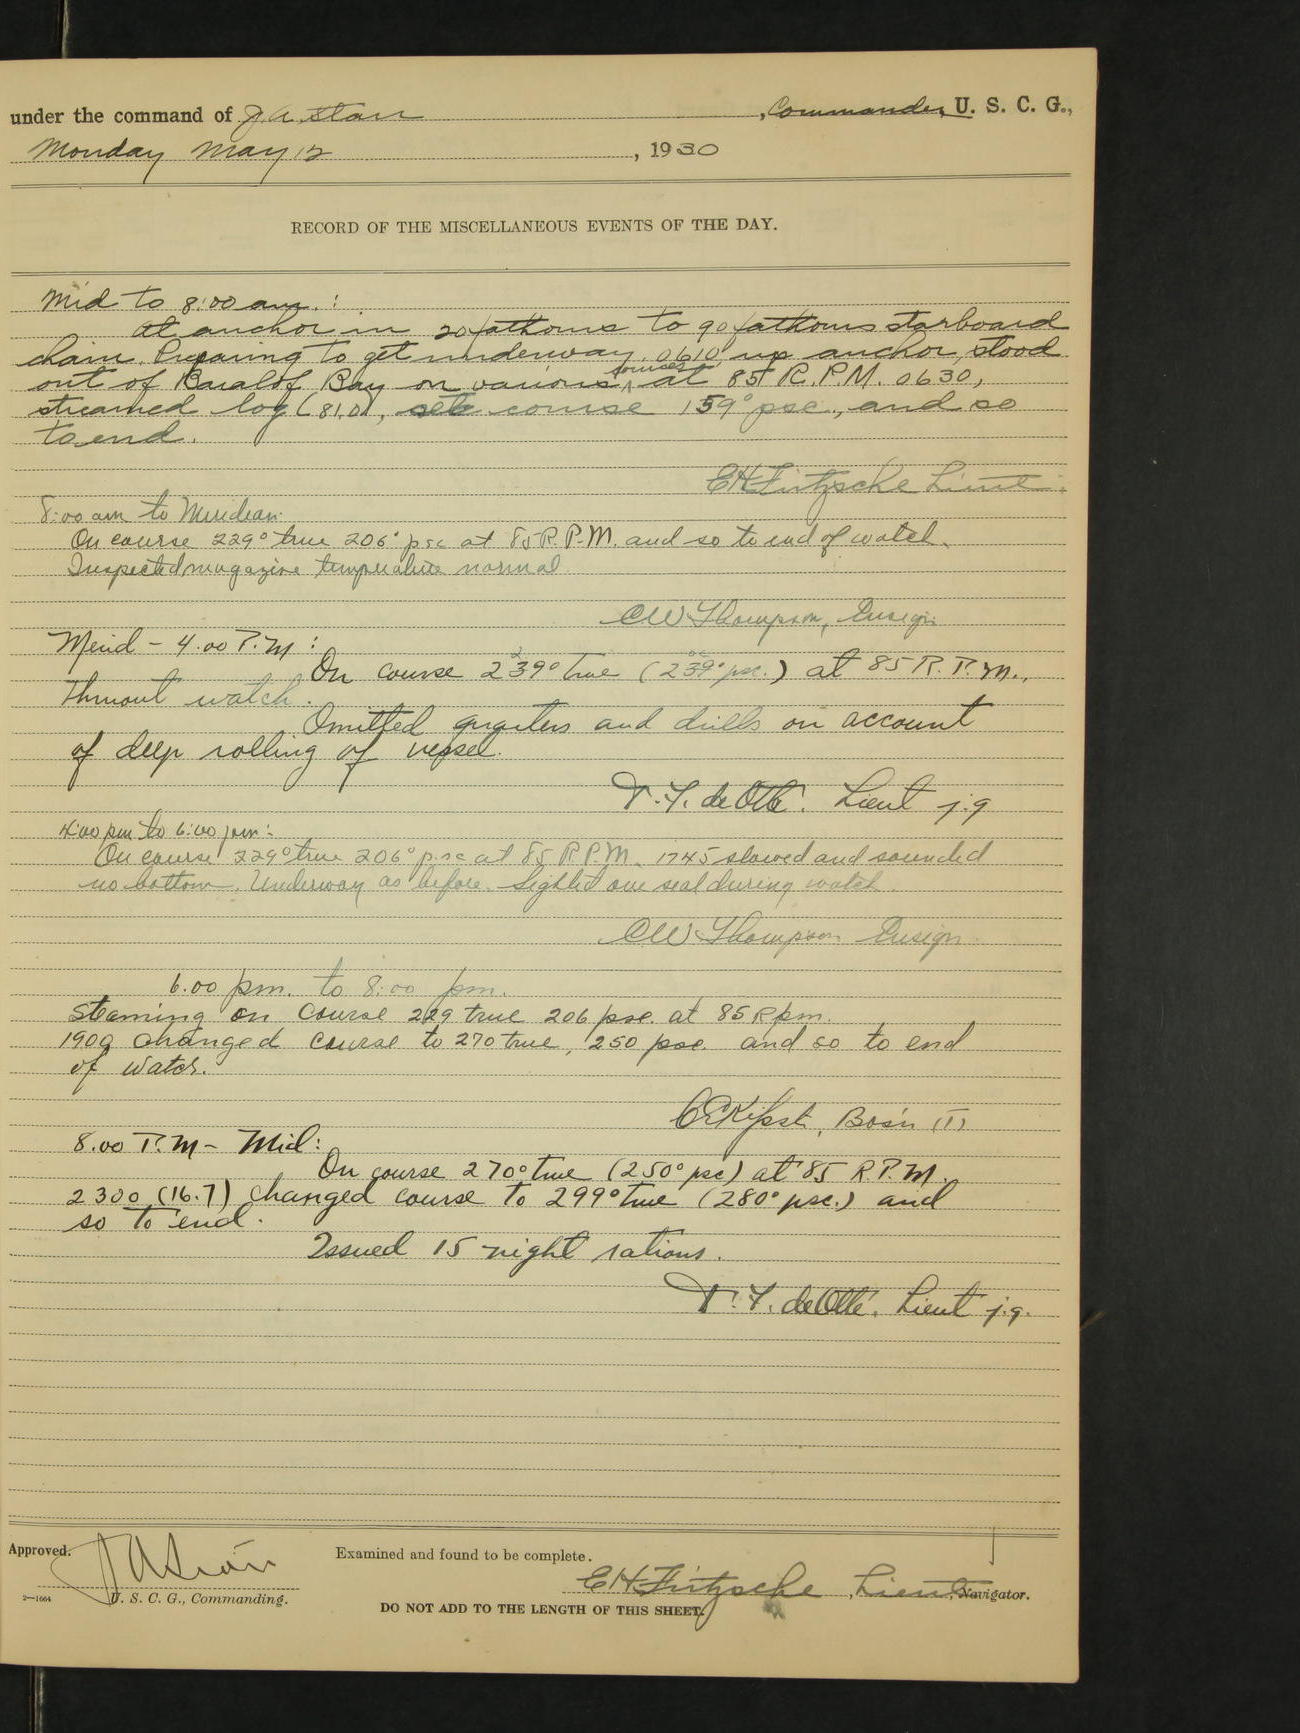 under the command of J A Starr, Commander, U. S. C. G.,
Monday May 12, 1930
RECORD OF THE MISCELLANEOUS EVENTS OF THE DAY.
Mid to 8:00 am.:
At anchor in 20 fathoms to 90 fathoms starboard
chain. Preparing to get underway. 0610 up anchor, stood
out of Baralof Bay on various courses at 85 R.P.M. 0630,
streamed log (81.0), set course 159° psc., and so
to end.
E H Fritzsche Lieut.
8:00 am to Meridian
On course 229° true 206° psc at 85 R.P.M. and so to end of watch.
Inspected magazine temperature normal
CW Thompson, Ensign.
Merid - 4.00 P.M:
On course 229° true (206° psc.) at 85 R.P.M.,
thruout watch.
Omitted quarters and drills on account
of deep rolling of vessel.
T. Y. de Otte. Lieut j.g
4:00 pm to 6:00 pm:
On course 229° true 206° p.sc at 85 R.P.M. 1745 slowed and sounded
no bottom. Underway as before. Sighted one seal during watch.
CW Thompson Ensign
6.00 pm. to 8:00 pm.
Steaming on course 229 true 206 psc. at 85 Rpm.
1900 changed course to 270 true, 250 psc. and so to end
of watch.
Bos'n (T)
8.00 P.M - Mid:
On course 270° true (250° psc) at 85 R.P.M.
2300 (16.7) changed course to 299° true (280° psc.) and
so to end.
Issued 15 night rations.
T. Y. de Otte. Lieut j.g.
Approved.
Examined and found to be complete.
J A Starr
E H Fritzsche, Lieut, Navigator.
2—1664
U. S. C. G., Commanding.
DO NOT ADD TO THE LENGTH OF THIS SHEET.